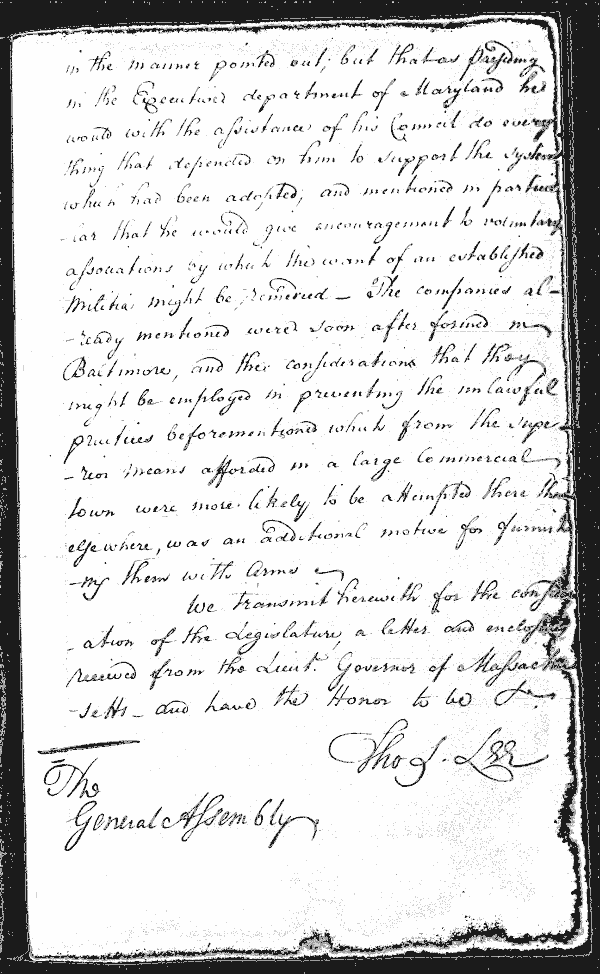 in the manner pointed out; but that as Presiding
in the Executive department of Maryland he
would with the assistance of his Council do every
thing that depended on him to support the system
which had been adopted; and mentioned in particu
-lar that he would give encouragement to voluntary
associations by which the want of an established
Militia might be remedied — The companies al-
-ready mentioned were soon after formed in
Baltimore, and the considerations that they
might be employed in preventing the unlawful
practices beforementioned which from the supe-
-rior means afforded in a large Commercial
town were more likely to be attempted there than
elsewhere, was an additional motive for furnish
-ing them with Arms
We transmit herewith for the consider
-ation of the Legislature, a letter and enclosure
received from the Lieut. Governor of Massachu
-setts — and have the Honor to be &c.
Tho S. Lee
The
General Assembly